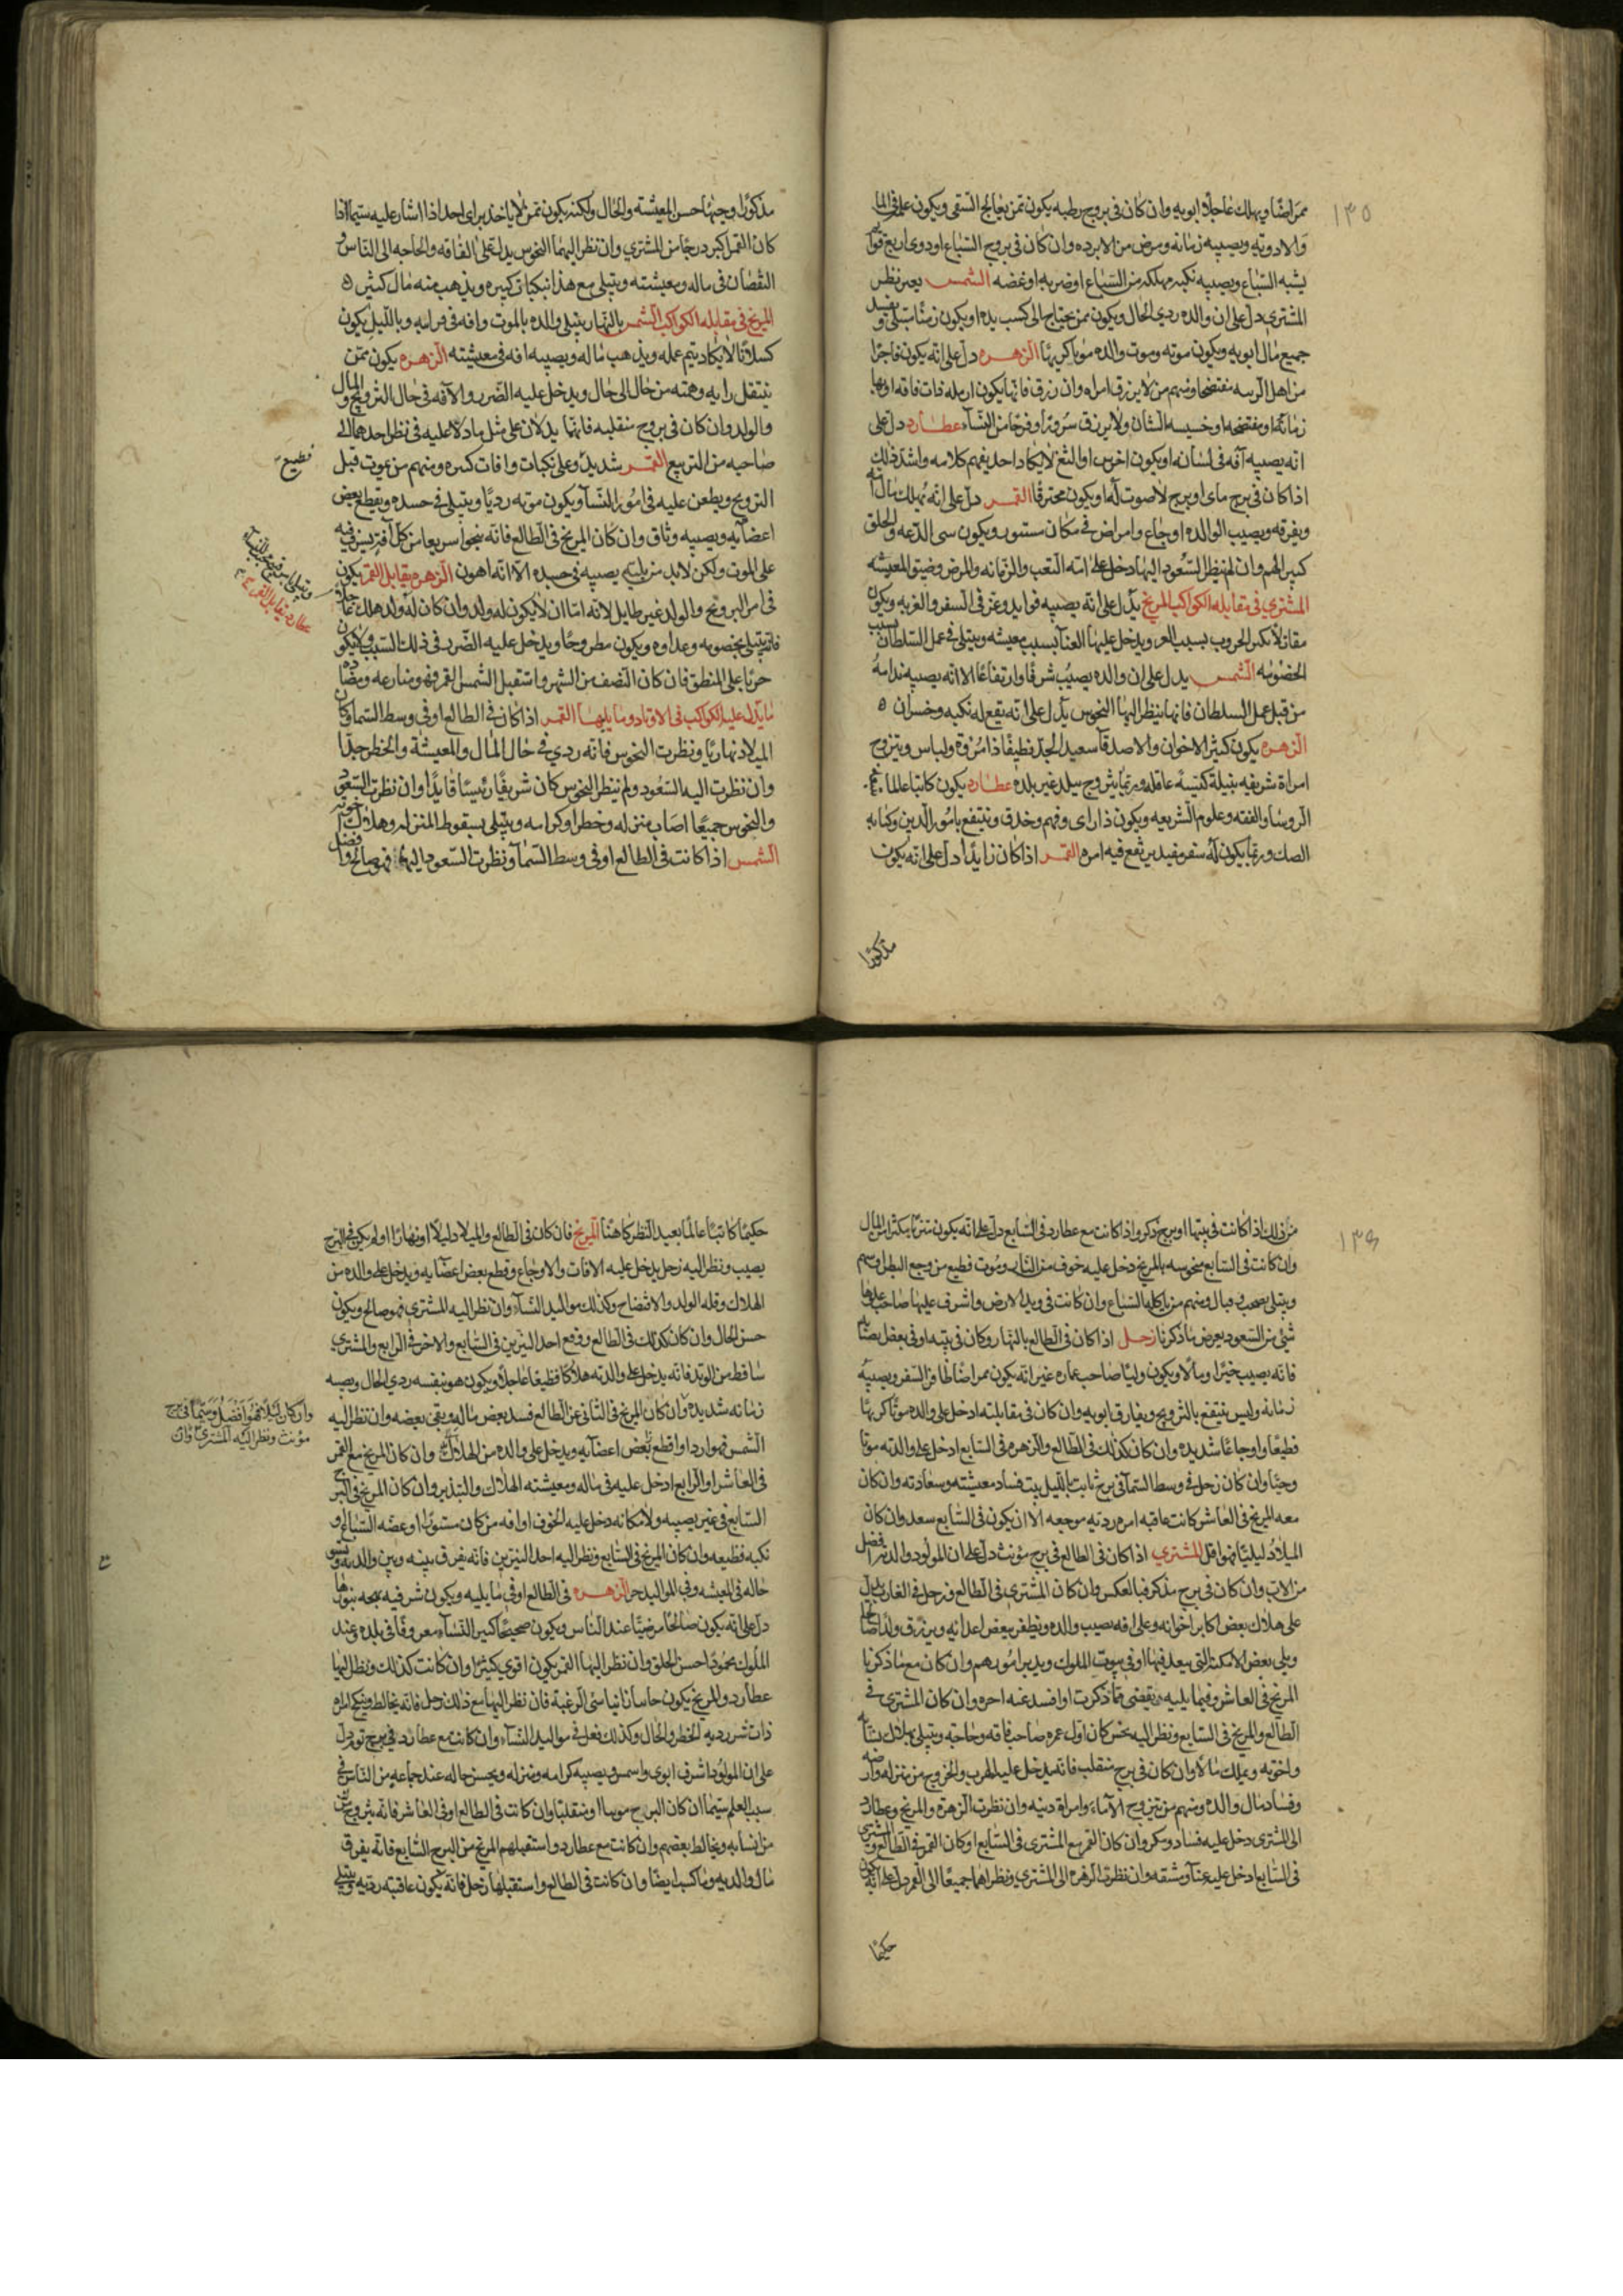 ١٣٥
ممراضا ويهلك عاجلا ابويه وان كان في بروج رطبه يكون ممن يعالج السقي ويكون عمله في الماء
والادويه ويصيبه زمانه ومرض من الابرده وان كان في بروج السباع او ذوي اربع قوائم
يشبه السباع ويصيبه نكبه مهلكه من السباع او ضربه او عضه الشمس بغير نظر
المشتري دل على ان والده ردي الحال ويكون ممن يحتاج الى كسب يده او يكون زمنا يبتلي ويفسد
جميع مال ابويه ويكون موته وموت والده موتا كريها الزهره دل على انه يكون فاجرا
من اهل الريبه مفتضحا ومنهم من لا يرزق امراه وان رزق فانها يكون ارمله ذات فاقه او بها
زمانه او مفتضحه او خسيسه الشان ولا يرزق سرورا وفرحا من النساء عطارد دل على
انه يصيبه آفه في لسانه او يكون اخرس او الثغ لا يكاد احد يفهم كلامه واشد ذلك
اذا كان في برج ماي او برج لا صوت له او يكون محترقا القمر دل على انه يهلك مال امه
ويفرقه ويصيب الوالده اوجاع وامراض في مكان مستور ويكون سي الدعه والخلق
كبير الهم وان لم ينظر السعود اليها دخل على امه التعب والزمانه والمرض وضيق المعيشه
المشتري في مقابله الكواكب المريخ يدل على انه يصيبه فوايد وعز في السفر والغربه ويكون
الخصومه الشمس يدل على ان والده يصيب شرفا وارتفاعا الا انه يصيبه ندامه
من قبل عمل السلطان فانها ينظر اليها النحوس يدل على انه يقع له نكبه وخسران ه
الزهره يكون كثير الاخوان والاصدقا سعيد الجد نظيفا ذا مروة ولباس ويتزوج
امراة شريفه نبيلة كيسه عاقله وربما يتزوج ببلد غير بلده عطارد يكون كاتبا عالما
الروسا والفقه وعلوم الشريعه ويكون ذا راى وفهم وحذق وينتفع بامور الدين وكتابه
الصك وربما يكون له سفر مفيد يرتفع فيه امره القمر اذا كان زايدا دل على انه يكون
مذكورا
مذكورا وجيها حسن المعيشه والحال ولكنه يكون ممن لا ياخذ براى احد اذا اشار عليه سيما اذا
كان القمر اكبر درجا من المشتري وان نظر اليها النحوس يدل على الفاقه والحاجه الى الناس و
النقصان في ماله ومعيشته ويبتلي مع هذا نبكبات كبيره ويذهب منه مال كثير ه
المريخ في مقابله الكواكب الشمس بالنهار يبتلي والده بالموت وافه في قرابيه وبالليل يكون
كسلانا لا يكاد يتم عمله ويذهب ماله ويصيبه افه في معيشته الزهره يكون ممن
ينتقل رايه وهمته من حال الى حال ويدخل عليه الضرر والآفه في حال التزويج والمال
والولد وان كان في بروج منقلبه فانها يدلان على مثل ما دلا عليه في نظر احدهما الى
صاحبه من التربيع القمر شديد وعلى نكبات وافات كبيره ومنهم من يموت قبل
التزويج ويطعن عليه في امور النسا ويكون موته رديا ويبتلي في جسده ويقطع بعض
اعضايه ويصيبه وثاق وان كان المريخ في الطالع فانه ينجوا سريعا من كل آفة يس فيه
على الموت ولكن لا بد من بليه يصيبه في جسده الا انه اهون الزهره يقابل القمر يكون
في امر التزويج والولد غير طايل لانه اما ان لا يكون له ولد وان كان له ولد هلك عاجلا
فانه يبتلي بخصومه وعداوه ويكون مطروحا ويدخل عليه الضرر في ذلك السبب ولا يكون
جريا على المنطق فان كان النصف من الشهر واستقبل الشمس القمر فهو منازعه ومضاده
ما يدل عليه الكواكب في الاوتاد وما يليها القمر اذا كان في الطالع او في وسط السما وكان
الميلاد نهاريا ونظرت النحوس فانه ردي في حال المال والمعيشة والخطر جدا
وان نظرت اليه السعود ولم ينظر النحوس كان شريفا رئيسا قايدا وان نظرت السعود
والنحوس جميعا اصاب منزله وخطرا وكرامه ويبتلي بسقوط المنزله وهلاك اخوته
الشمس اذا كانت في الطالع او في وسط السمآ ونظرت السعود اليها فهو صالح وافضل
فظيع
عطارد يقابل القمر
١٣٦
من ذلك اذا كانت في بيتها او برج ذكر واذا كانت مع عطارد في السابع دل على انه يكون متنزها يكثر المال
وان كانت في السابع منحوسه بالمريخ دخل عليه خوف من النار وموت فظيع من وجع البطن او سم
ويبتلي بصحب وبال ومنهم من ياكله السباع وان كانت في وتد الارض واشرف عليها صاحب علوها
شيء من السعود يعرض ما ذكرنا زحل اذا كان في الطالع بالنهار وكان في بيته او في بعض
فانه يصيب خيرا ومالا ويكون وليا صاحب عماره غير انه يكون ممراضا ظافر السفر ويصيبه
زمانة وليس ينتفع بالتزويج ويفارق ابويه وان كان في مقابلته ادخل على والده موتا كريها
فظيعا واوجاعا شديده وان كان كذلك في الطالع والزهره في السابع ادخل على والدته موتا
وحيا وان كان زحل في وسط السمآ في برج ثابت بالليل يبث فساد معيشته وسعادته وان كان
معه المريخ في العاشر كانت عاقبه امره رديه موجعه الا ان يكون في السابع سعد وان كان
الميلاد ليليا فهو اقل المشتري اذا كان في الطالع في برج مؤنث دل على ان المولود والدته افضل
من الاب وان كان في برج مذكر فبالعكس وان كان المشتري في الطالع وزحل في الغارب دل
على هلاك بعض اكابر اخوانه وعلى افه يصيب والده ويظفر ببعض اعدائه ويرزق ولدا صالحا
ويلي بعض الامكنه التي يبعد فيها او في بيوت الملوك ويدبر امورهم وان كان مع ما ذكرنا
المريخ في العاشر وفيما يليه نقص مما ذكرت او افسد عنه اخره وان كان المشترى في
الطالع والمريخ في السابع ونظر اليه نحس كان اول عمره صاحب فاقه وحاجه ويبتلي بهلاك
واخوته ويملك مالا وان كان في برج منقلب فانه يدخل عليه الهرب والخروج من منزله وارضه
وفساد مال والده ومنهم من يتزوج الآماء وامراة دنيه وان نظرت الزهرة والمريخ وعطارد
الى المشترى دخل عليه فساد ومكر وان كان القمر مع المشترى في السابع او كان القمر في الطالع والمشترى
في السابع ادخل عليه عنآ ومشقه وان نظرت الزهره الى المشتري ونظراهما جميعا الى القمر دل على انه يكون
حكيما
حكيما كاتبا عالما بعيد النظر كاهنا المريخ فان كان في الطالع والميلاد ليلا او نهارا او لم يكن في البرج
يصيب ونظر اليه زحل يدخل عليه الافات والاوجاع وقطع بعض اعضآيه ويدخل على والده من
الهلاك وقله الولد والافتضاح وكذلك مواليد النسآء وان نظر اليه المشتري فهو صالح ويكون
حسن الحال وان كان كذلك في الطالع ووقع احد النيرين في السابع والاخر في الرابع والمشتري
ساقط من الوتد فانه يدخل على والدته هلاكا فظيعا عاجلا ويكون هو بنفسه ردي الحال ويصيبه
زمانه شديده وان كان المريخ في الثاني عن الطالع فسد بعض ماله ويبقى بعضه وان نظر اليه
الشمس فهو اردا واقطع بعض اعضآيه ويدخل على والده من الهلاك وان كان المريخ مع القمر
في العاشر او الرابع ادخل عليه في ماله ومعيشته الهلاك والتبذير وان كان المريخ في البرج
السابع في غير نصيبه ولا مكانه دخل عليه الخوف او افه من كان مستورا او عضه السباع او
نكبه فظيعه وان كان المريخ في السابع ونظر اليه احد النيرين فانه يفرق بينه وبين والديه ويسو
حاله في المعيشه وفي المواليد الزهره في الطالع او في ما يليه ويكون شرفيه
دل على انه يكون صالحا مرضيا عند الناس ويكون صحيحا كبير النسآء معروفا في بلده وعند
الملوك محمودا حسن الخلق وان نظر اليها القمر يكون اقوي كثيرا وان كانت كذلك ونظر اليها
عطارد والمريخ يكون حاسبا زانيا سئى الرغبة فان نظر اليها مع ذلك زحل فانه يخالط وينكح امراه
ذات شر رديه الخطر والحال وكذلك فعل في مواليد النسآء وان كانت مع عطارد في برج توم دل
على ان المولود اشرف ابوي واسمى ويصيبه كرامه ومنزله ويحسن حاله عند جماعه من الناس في
سبب العلم سيما ان كان البرج مونثا او منقلبا وان كانت في الطالع او في العاشر فانه يتزوج
من انسابه ويخالط بعضهم وان كانت مع عطارد واستقبلهم المريخ من البرج السابع فانه يفرق
مال والديه وما كسب ايضا وان كانت في الطالع واستقبلها زحل فانه يكون عاقبته رديه ويبتلي
وان كان ليلا فهو افضل وسيما في برج
مؤنث ونظر اليه المشتري وان